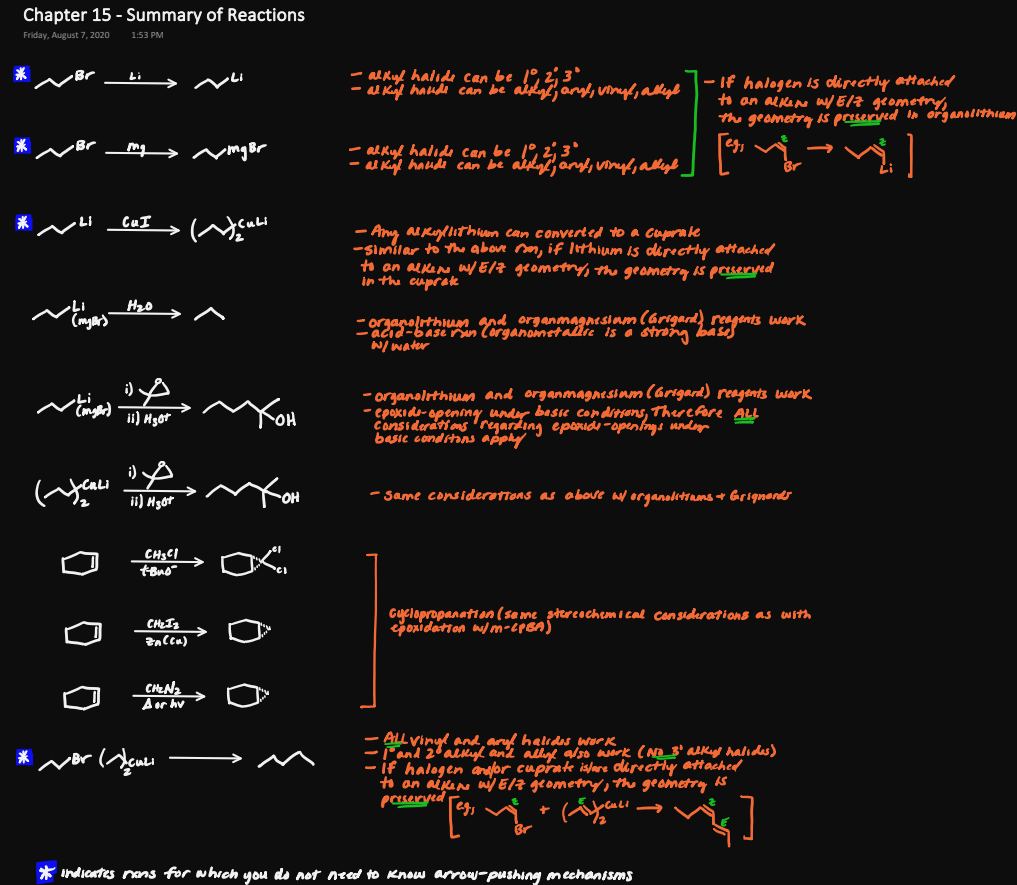 Chapter 15 - Summary of Reactions
Friday, August 7, 2020 1:53 PM
* Br Li Li
- alkyl halide can be 1°, 2°, 3°
- alkyl halide can be alkyl, aryl, vinyl, allyl
- If halogen is directly attached
to an alkene w/ E/Z geometry,
the geometry is preserved in organolithium
[eg, Z Br → Z Li]
* Br mg mgBr
- alkyl halide can be 1°, 2°, 3°
- alkyl halide can be alkyl, aryl, vinyl, allyl
* Li CuI ( )2 CuLi
- Any alkyllithium can converted to a cuprate
- Similar to the above rxn, if lithium is directly attached
to an alkene w/ E/Z geometry, the geometry is preserved
in the cuprate
Li (mgBr) H2O
- organolithium and organmagnesium (Grigard) reagents work
- acid-base rxn (organometallic is a strong base)
w/ water
Li (mgBr) i) O ii) H3O+ OH
- organolithium and organmagnesium (Grigard) reagents work
- epoxide-opening under basic conditions, Therefore ALL
considerations regarding epoxide-openings under
basic conditons apply
( )2 CuLi i) O ii) H3O+ OH
- Same considerations as above w/ organolitiums + Grignards
CH3Cl t-BuO- Cl Cl
CH2I2 Zn(Cu)
Cyclopropanation (same stereochemical considerations as with
epoxidation w/ m-CPBA)
CH2N2 Δ or hv
* Br ( )2 CuLi
- ALL vinyl and aryl halides work
- 1° and 2° alkyl and allyl also work (No 3° alkyl halides)
- If halogen and/or cuprate is/are directly attached
to an alkene w/ E/Z geometry, the geometry is
preserved
[eg, Z Br + (E )2 CuLi → Z E]
* indicates rxns for which you do not need to know arrow-pushing mechanisms